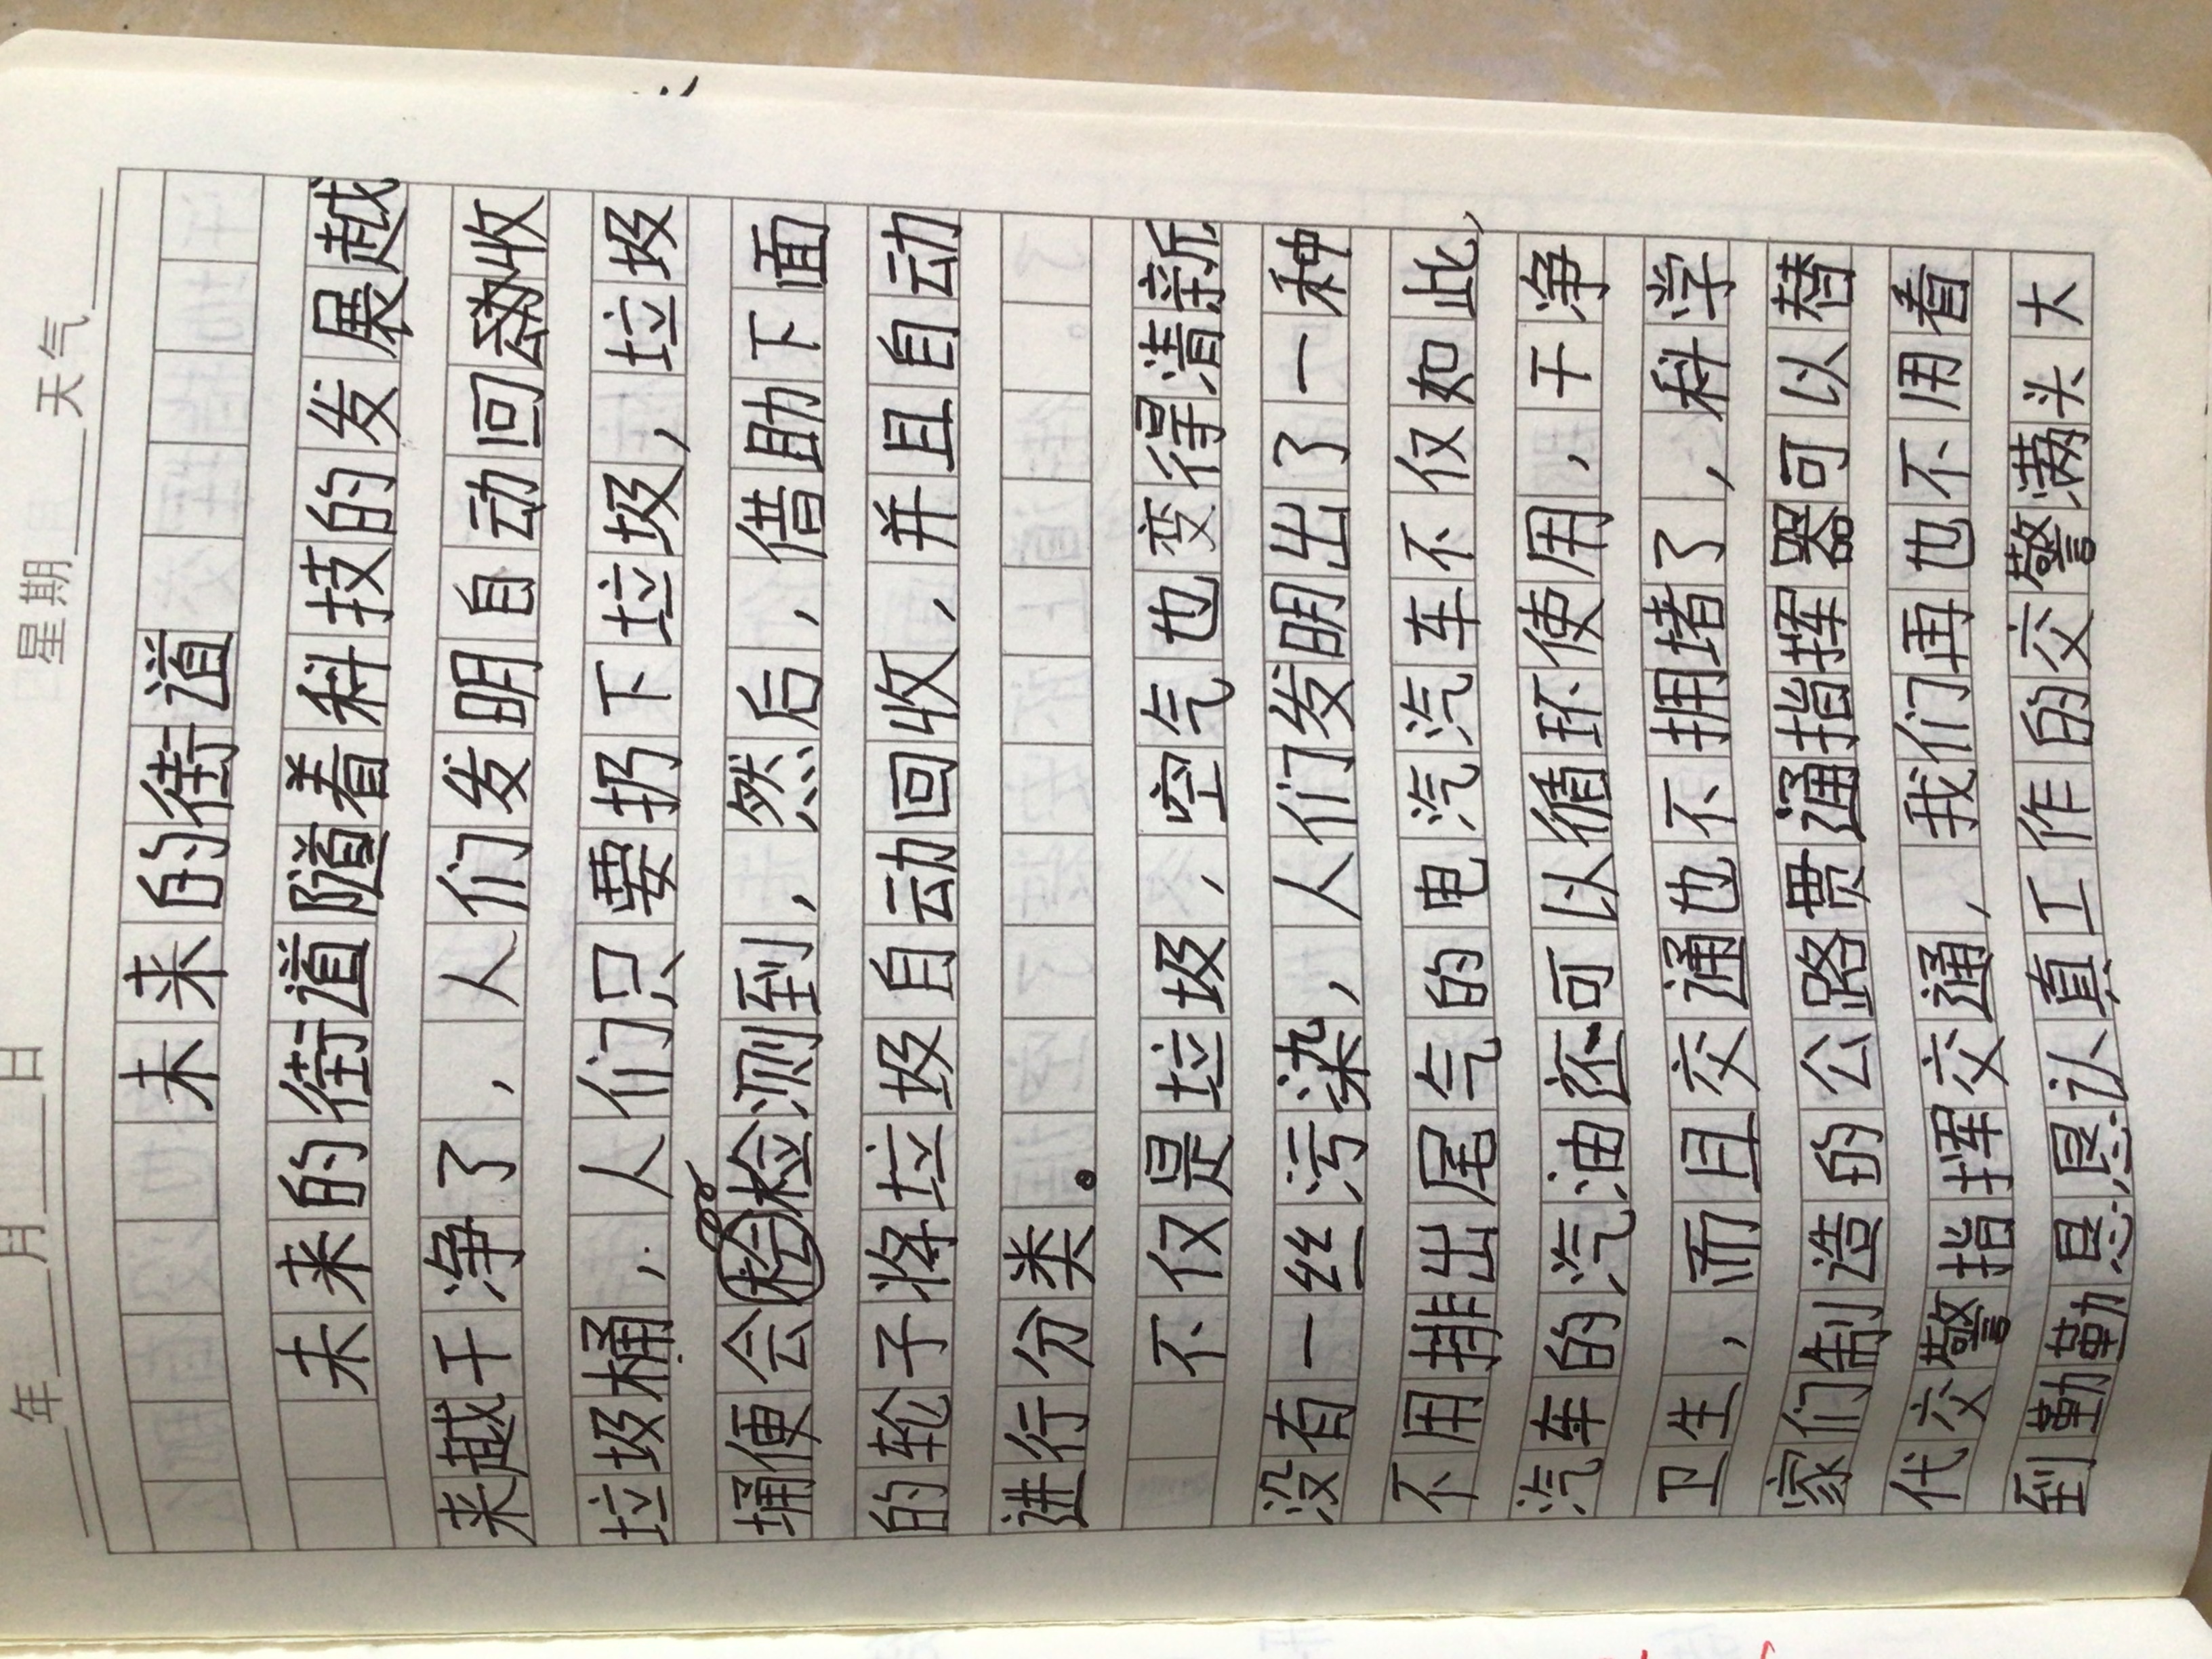 年 月 日 星期 天气
未来的街道
未来的街道随着科技的发展越
来越干净了,人们发明自动回收
垃圾桶,人们只要扔下垃圾,垃圾
桶便会检测到,然后,借助下面
的轮子将垃圾自动回收,并且自动
进行分类。
不仅是垃圾,空气也变得清新
没有一丝污染,人们发明出了一种
不用排出尾气的电汽汽车不仅如此,
汽车的汽油还可以循环使用,干净
卫生,而且交通也不拥堵了,科学
家们制造的公路贯通指挥器可以替
代交警指挥交通,我们再也不用看
到勤勤恳恳认真工作的交警满头大